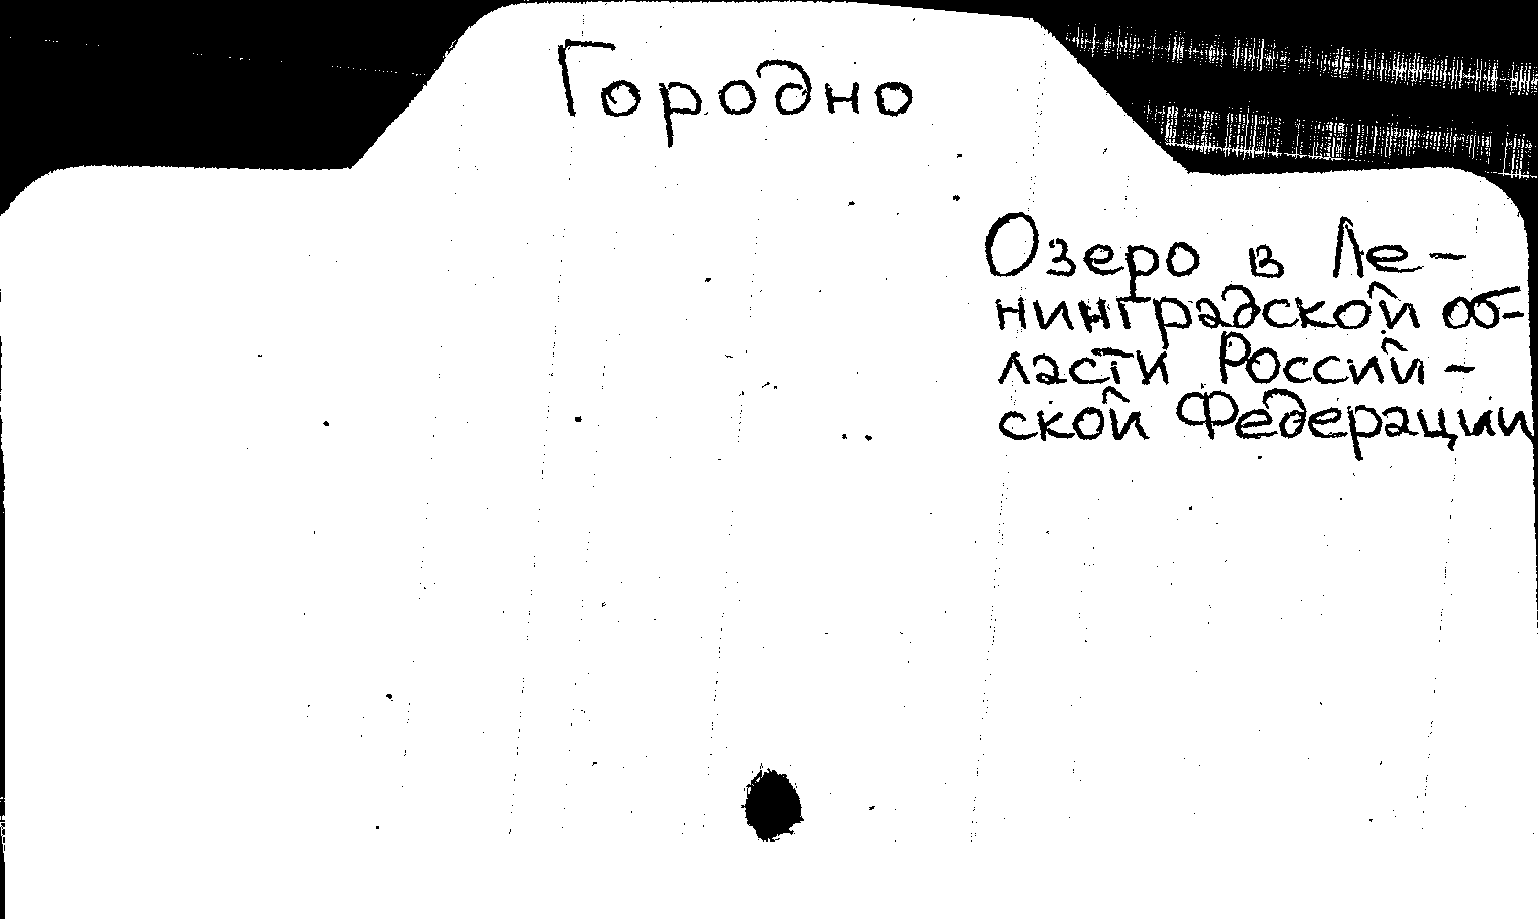 Городно
Озеро в Ле-
нинградской об-
ласти Россий-
ской Федерации